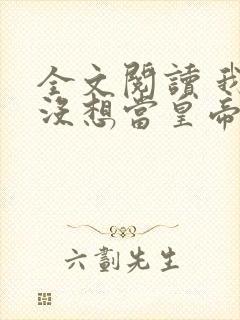 全文閱讀 我
沒想當皇帝
六劃先生